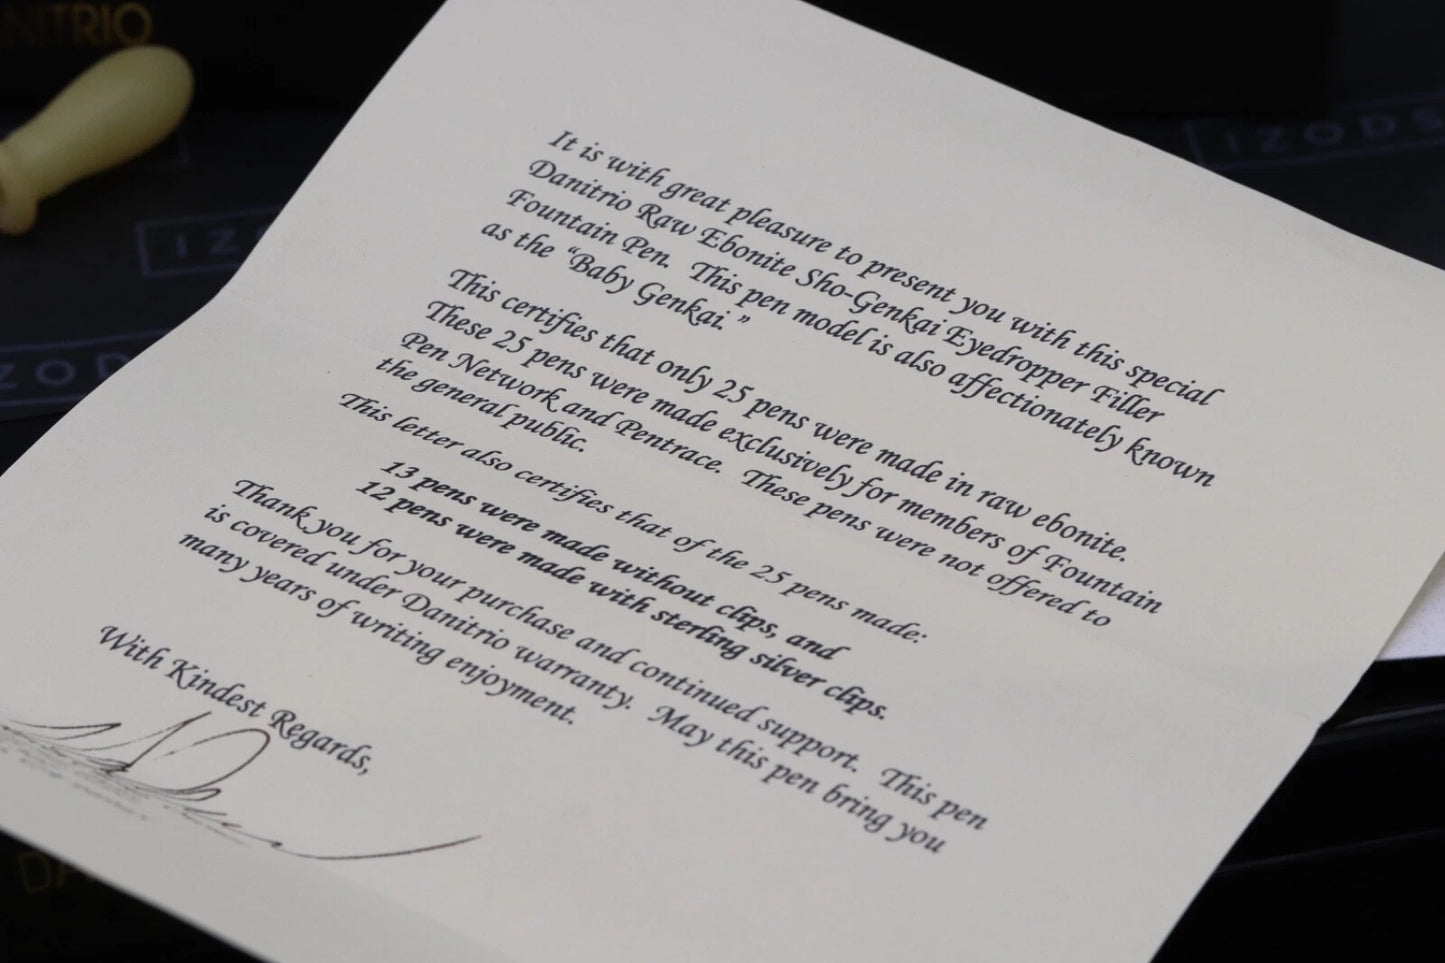 NITRIO
IZODS
IZ
ZODS
It is with great pleasure to present you with this special
Danitrio Raw Ebonite Sho-Genkai Eyedropper Filler
Fountain Pen. This pen model is also affectionately known
as the "Baby Genkai."
This certifies that only 25 pens were made in raw ebonite.
These 25 pens were made exclusively for members of Fountain
Pen Network and Pentrace. These pens were not offered to
the general public.
This letter also certifies that of the 25 pens made:
13 pens were made without clips, and
12 pens were made with sterling silver clips.
Thank you for your purchase and continued support. This pen
is covered under Danitrio warranty. May this pen bring you
many years of writing enjoyment.
With Kindest Regards,
DA